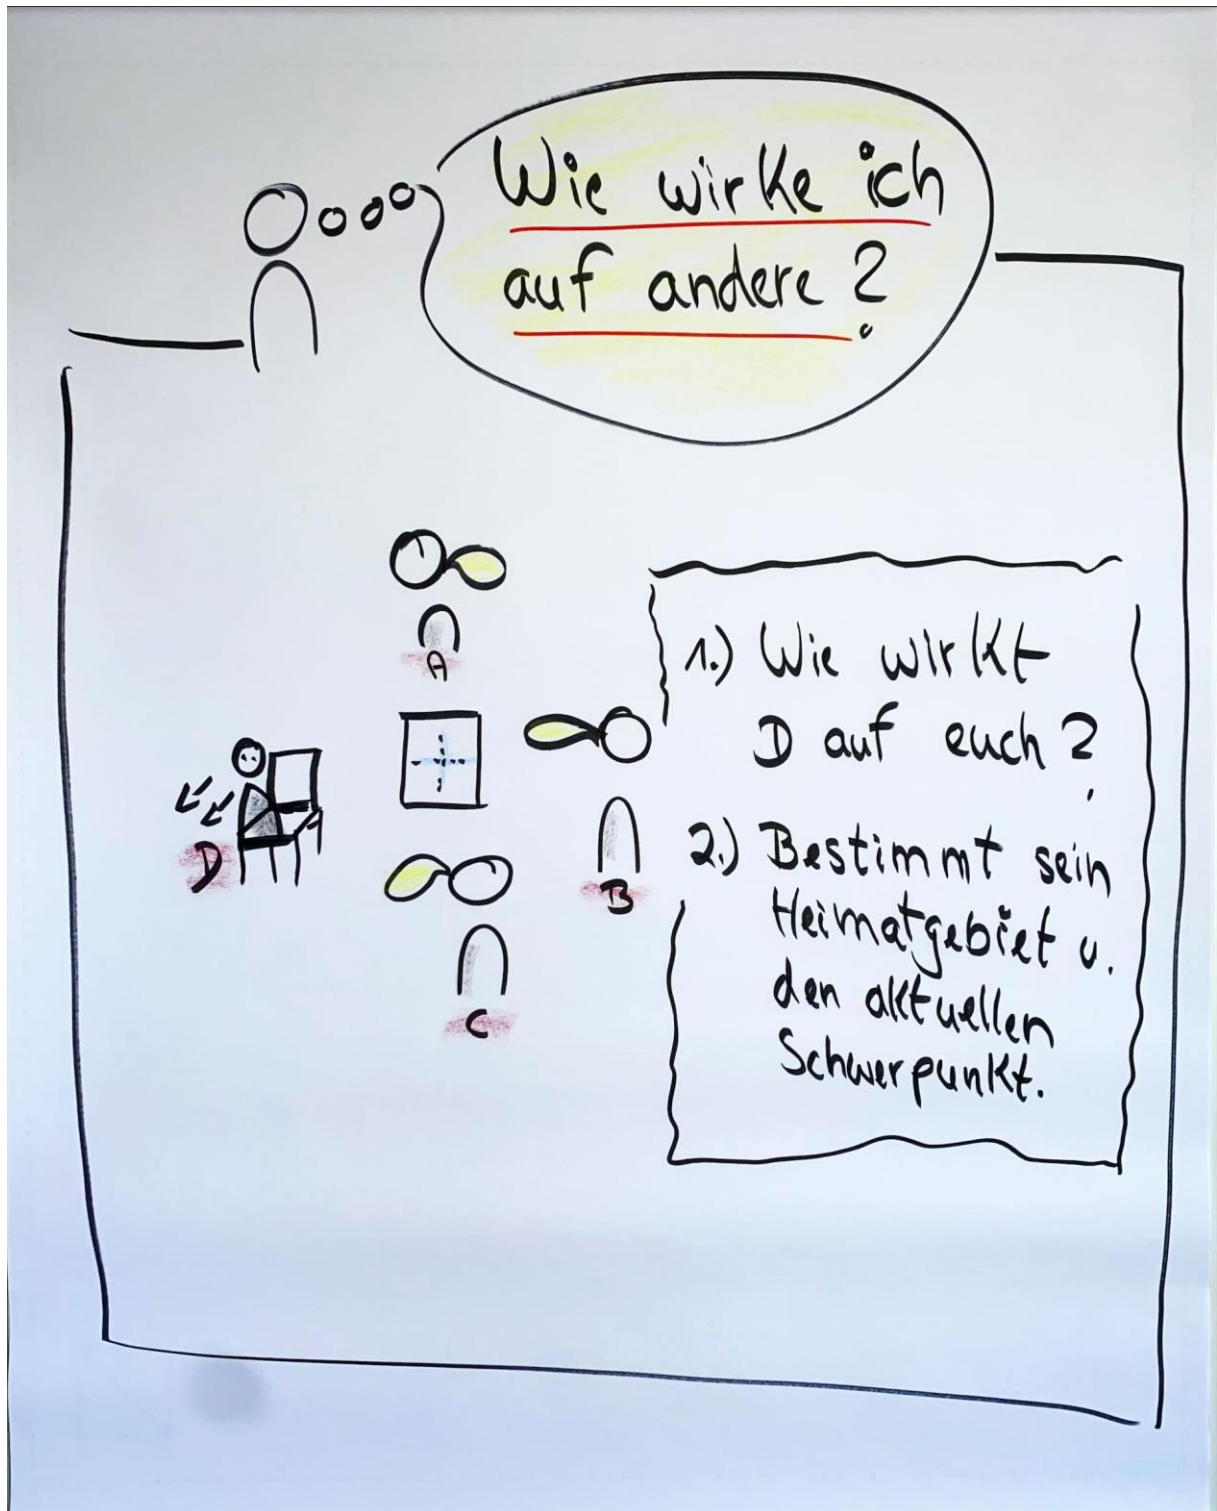 Wie wirke ich
auf andere?
A
D
B
C
1.) Wie wirkt
D auf euch?
2.) Bestimmt sein
Heimatgebiet u.
den aktuellen
Schwerpunkt.